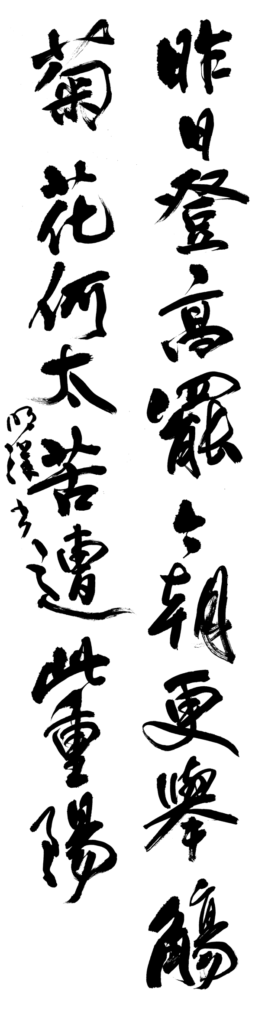 昨日登高罷今朝更舉觴
菊花何太苦遭此重陽
明